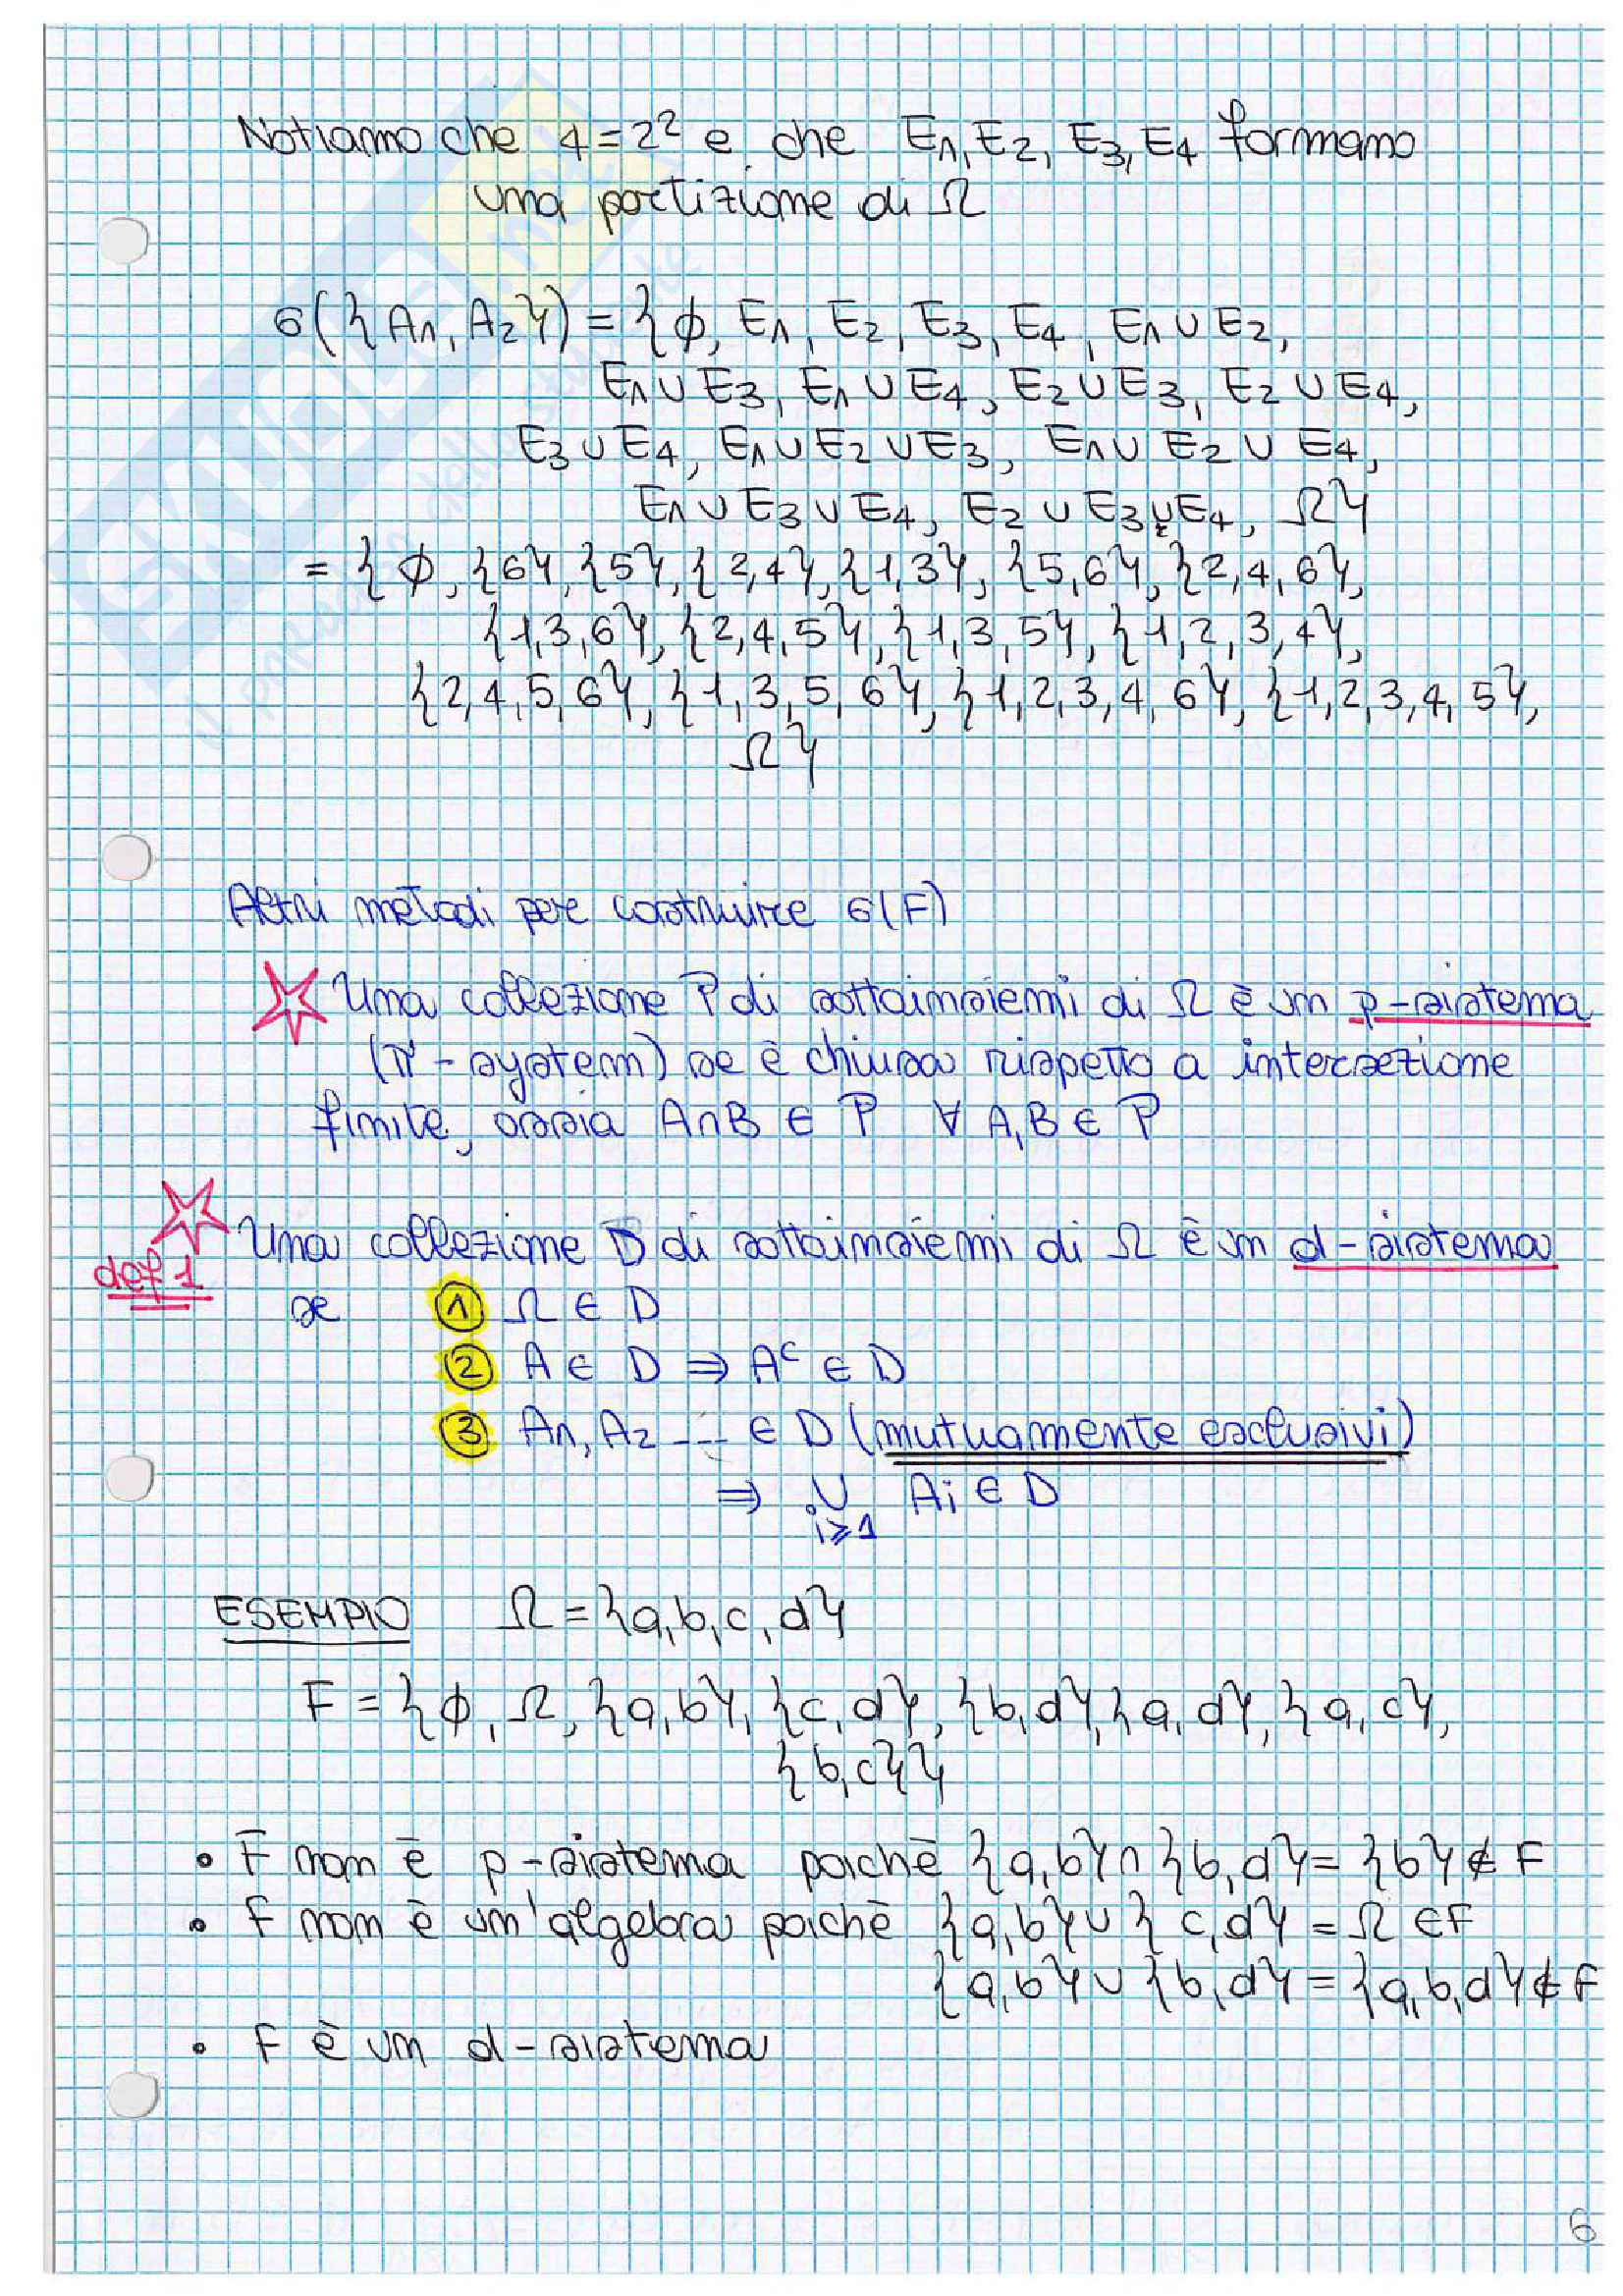 Notiamo che 4 = 2² e che E1, E2, E3, E4 formano
una partizione di Ω
σ({A1, A2}) = {∅, E1, E2, E3, E4, E1 ∪ E2,
E1 ∪ E3, E1 ∪ E4, E2 ∪ E3, E2 ∪ E4,
E3 ∪ E4, E1 ∪ E2 ∪ E3, E1 ∪ E2 ∪ E4,
E1 ∪ E3 ∪ E4, E2 ∪ E3 ∪ E4, Ω}
= {∅, {6}, {5}, {2,4}, {1,3}, {5,6}, {2,4,6},
{1,3,6}, {2,4,5}, {1,3,5}, {1,2,3,4},
{2,4,5,6}, {1,3,5,6}, {1,2,3,4,6}, {1,2,3,4,5},
Ω}
Altri metodi per costruire σ(F)
Una collezione P di sottoinsiemi di Ω è un p-sistema
(π-system) se è chiusa rispetto a intersezione
finite, ossia A∩B ∈ P ∀ A,B ∈ P
def 1
Una collezione D di sottoinsiemi di Ω è un d-sistema
se ① Ω ∈ D
② A ∈ D ⇒ Aᶜ ∈ D
③ A1, A2 --- ∈ D (mutuamente esclusivi)
⇒ ∪ Ai ∈ D
i≥1
ESEMPIO Ω = {a,b,c,d}
F = {∅, Ω, {a,b}, {c,d}, {b,d}, {a,d}, {a,c},
{b,c}}
• F non è p-sistema poichè {a,b} ∩ {b,d} = {b} ∉ F
• F non è un'algebra poichè {a,b} ∪ {c,d} = Ω ∈ F
{a,b} ∪ {b,d} = {a,b,d} ∉ F
• F è un d-sistema
6
SKUOLA.net